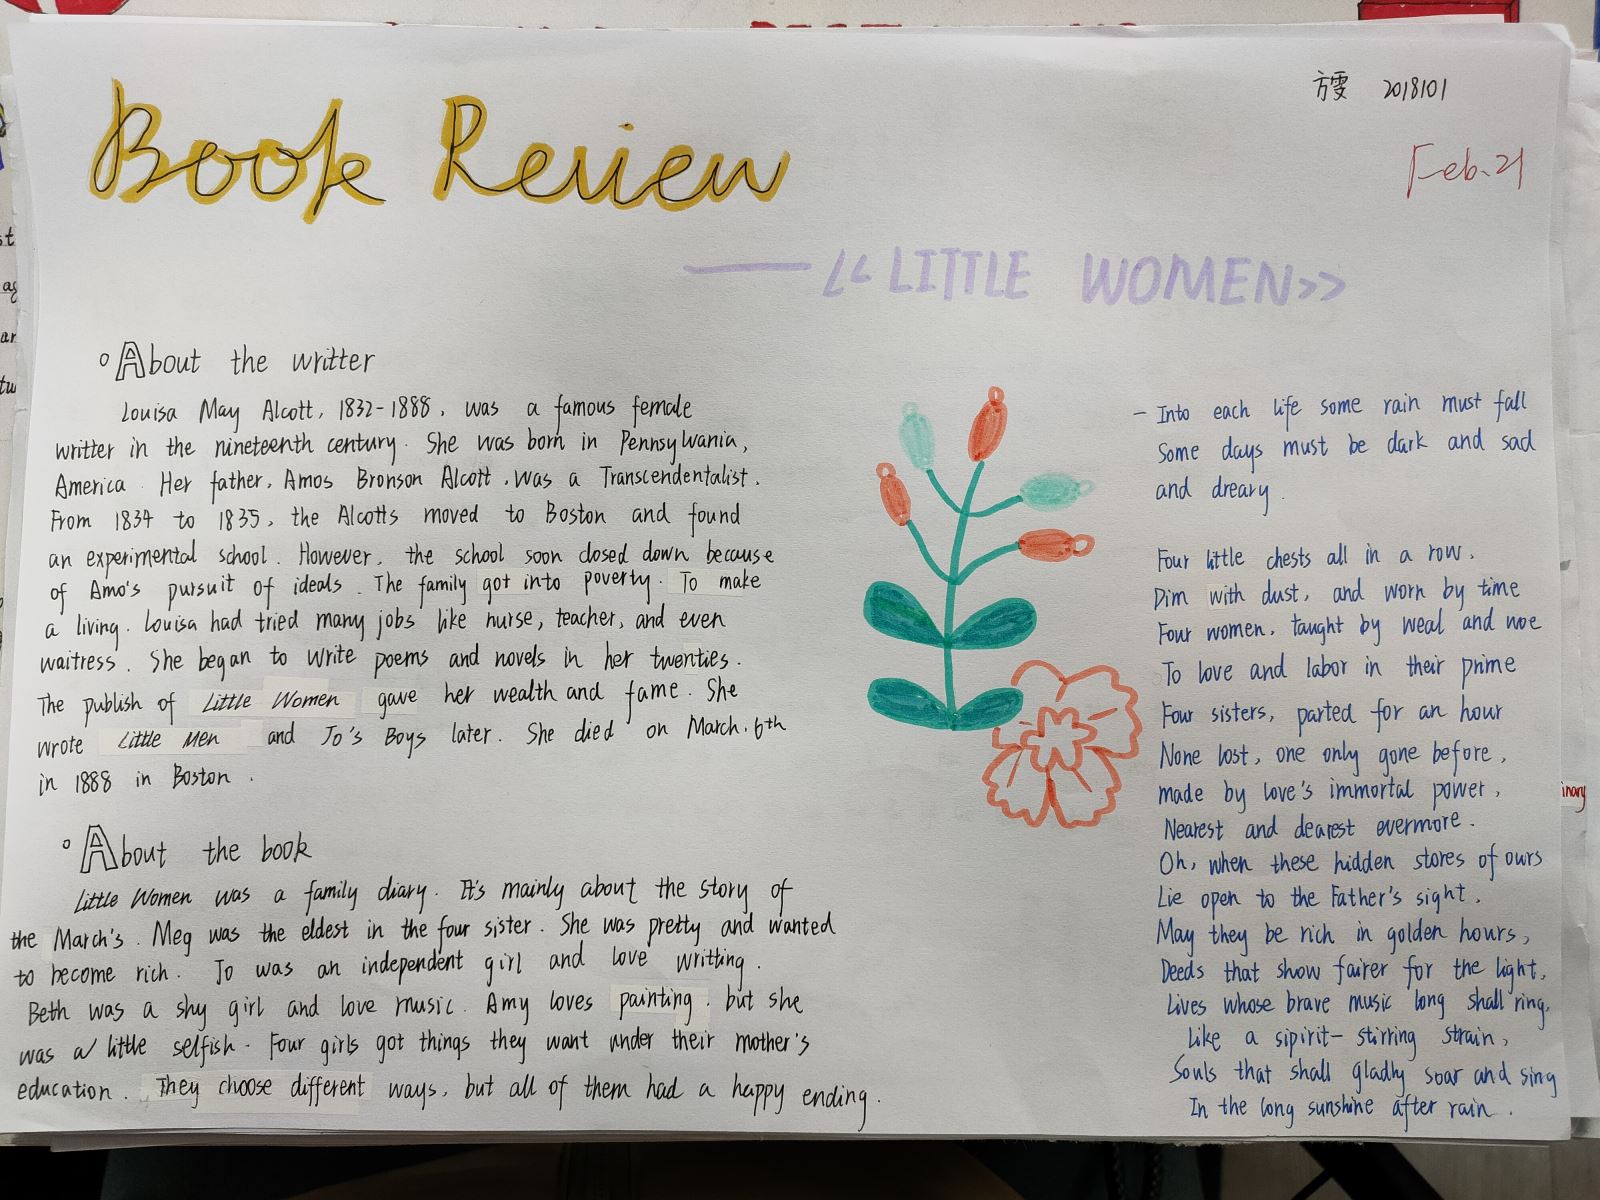 方雯 2018101
Feb.21
Book Review
——《LITTLE WOMEN》
About the writter
Louisa May Alcott, 1832-1888, was a famous female
writter in the nineteenth century. She was born in Pennsylwania,
America. Her father, Amos Bronson Alcott, was a Transcendentalist.
From 1834 to 1835, the Alcotts moved to Boston and found
an experimental school. However, the school soon closed down because
of Amo's pursuit of ideals. The family got into poverty. To make
a living. Louisa had tried many jobs like nurse, teacher, and even
waitress. She began to write poems and novels in her twenties.
The publish of Little Women gave her wealth and fame. She
wrote Little Men and Jo's Boys later. She died on March. 6th
in 1888 in Boston.
About the book
Little Women was a family diary. It's mainly about the story of
the March's. Meg was the eldest in the four sister. She was pretty and wanted
to become rich. Jo was an independent girl and love writting.
Beth was a shy girl and love music. Amy loves painting. but she
was a little selfish. Four girls got things they want under their mother's
education. They choose different ways, but all of them had a happy ending.
- Into each life some rain must fall
Some days must be dark and sad
and dreary.
Four little chests all in a row.
Dim with dust, and worn by time
Four women, taught by weal and woe
To love and labor in their prime
Four sisters, parted for an hour
None lost, one only gone before,
made by love's immortal power,
Nearest and dearest evermore.
Oh, when these hidden stores of ours
Lie open to the Father's sight.
May they be rich in golden hours,
Deeds that show fairer for the light,
Lives whose brave music long shall ring,
Like a sipirit-stirring strain,
Souls that shall gladly soar and sing
In the long sunshine after rain.